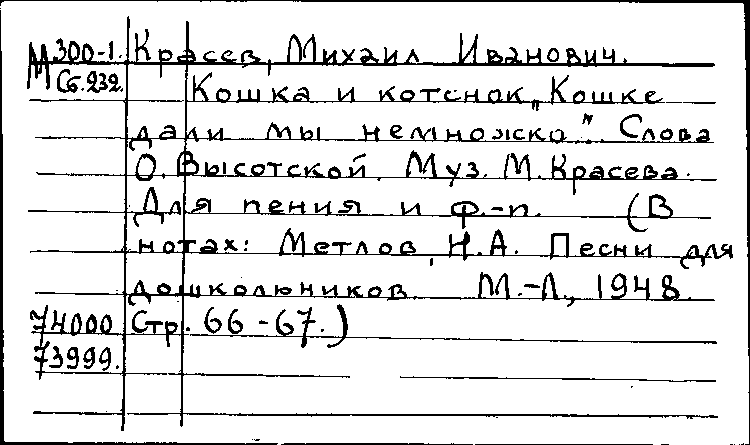 М 300-1. Красев, Михаил Иванович.
Сб. 232. Кошка и котенок „Кошке
дали мы немножко". Слова
О. Высотской. Муз. М. Красева.
Для пения и ф.-п. (В
нотах: Метлов, Н.А. Песни для
дошкольников. М.-Л., 1948.
74000 Стр. 66-67.)
73999.